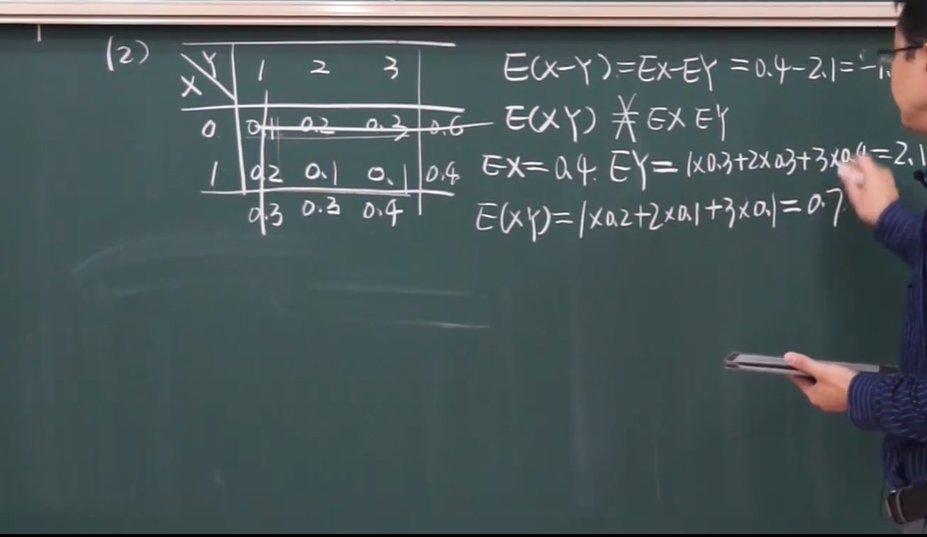 (2)
X Y 1 2 3
0 0.1 0.2 0.3 0.6
1 0.2 0.1 0.1 0.4
0.3 0.3 0.4
E(X-Y)=EX-EY=0.4-2.1=-1.
E(XY) ≠ EX EY
EX=0.4. EY=1×0.3+2×0.3+3×0.4=2.1
E(XY)=1×0.2+2×0.1+3×0.1=0.7